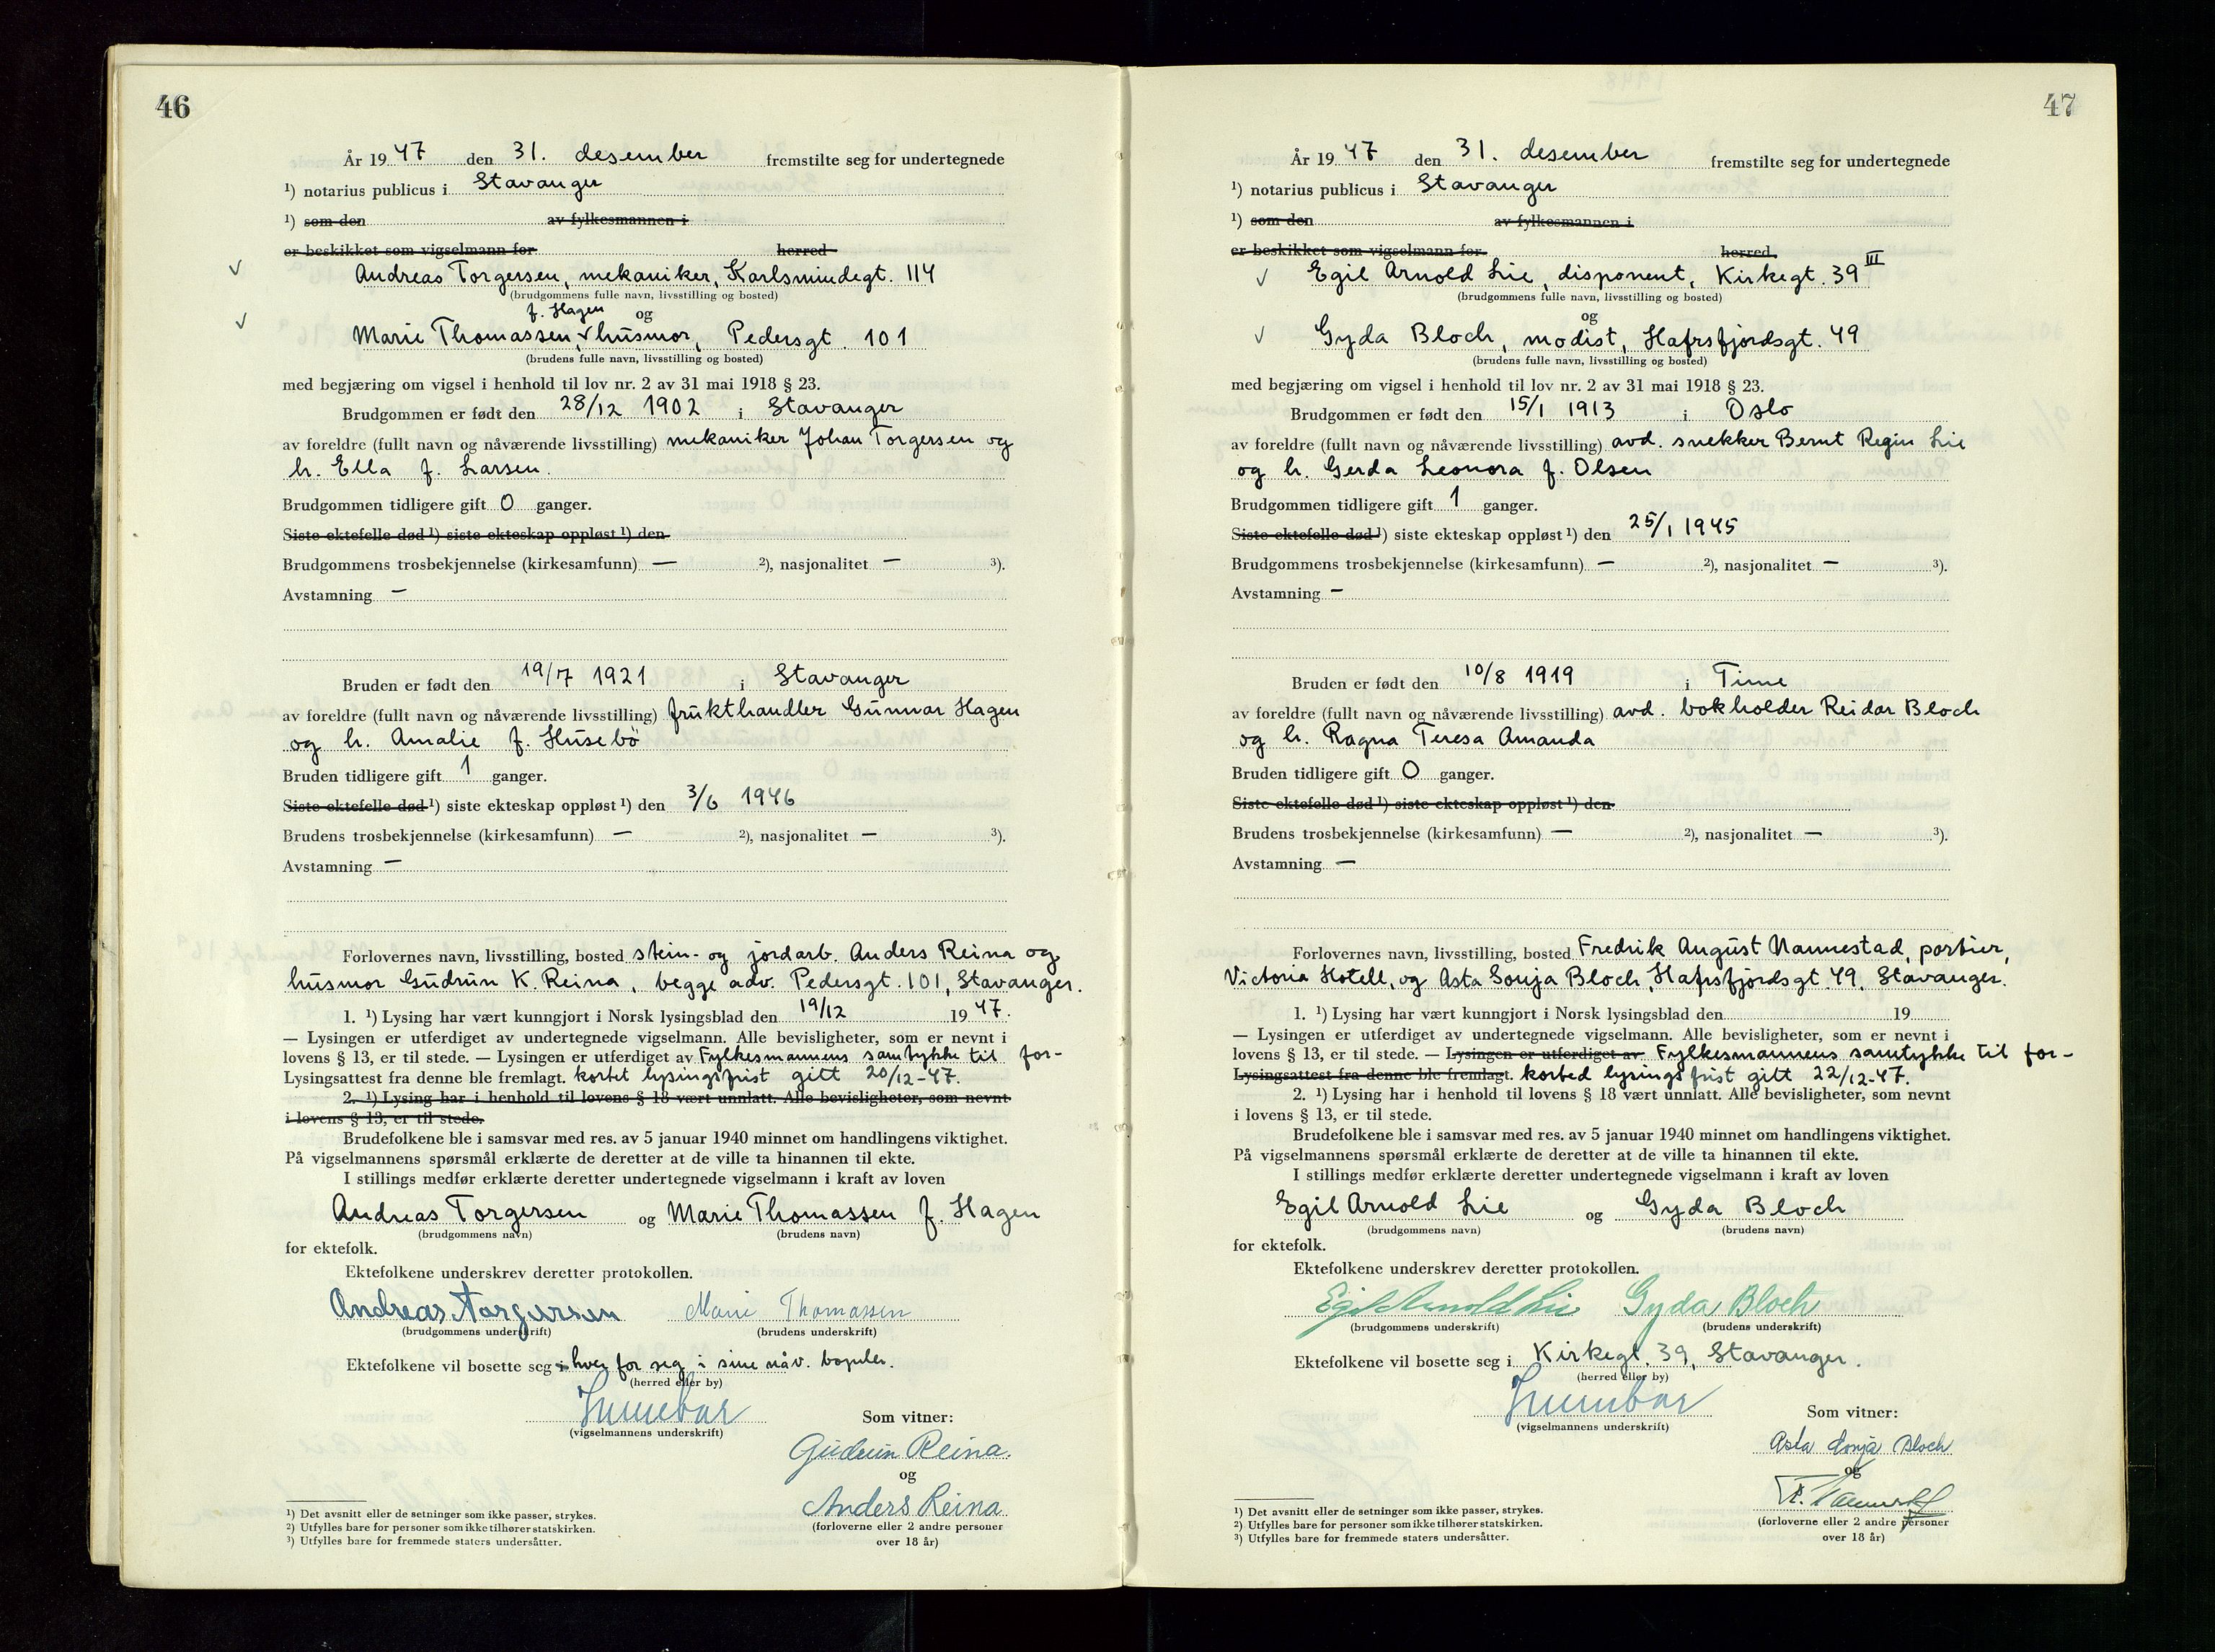 46
År 19 47 den 31. desember fremstilte seg for undertegnede
¹) notarius publicus i Stavanger
¹) som den av fylkesmannen i
er beskikket som vigselmann for herred
Andreas Torgersen, mekaniker, Karlsmindegt. 114
(brudgommens fulle navn, livsstilling og bosted)
f. Hagen og
Marie Thomassen, v husmor, Pedersgt. 101
(brudens fulle navn, livsstilling og bosted)
med begjæring om vigsel i henhold til lov nr. 2 av 31 mai 1918 § 23.
Brudgommen er født den 28/12 1902 i Stavanger
av foreldre (fullt navn og nåværende livsstilling) mekaniker Johan Torgersen og
h. Ella f. Larsen.
Brudgommen tidligere gift 0 ganger.
Siste ektefelle død ¹) siste ekteskap oppløst ¹) den
Brudgommens trosbekjennelse (kirkesamfunn) — ²), nasjonalitet — ³).
Avstamning —
Bruden er født den 19/7 1921 i Stavanger
av foreldre (fullt navn og nåværende livsstilling) frukthandler Gunnar Hagen
og h. Amalie f. Husebö
Bruden tidligere gift 1 ganger.
Siste ektefelle død ¹) siste ekteskap oppløst ¹) den 3/6 1946
Brudens trosbekjennelse (kirkesamfunn) — ²), nasjonalitet — ³).
Avstamning —
Forlovernes navn, livsstilling, bosted stein- og jordarb. Anders Reina og
husmor Gudrun K. Reina, begge adv. Pedersgt. 101, Stavanger.
1. ¹) Lysing har vært kunngjort i Norsk lysingsblad den 19/12 19 47.
— Lysingen er utferdiget av undertegnede vigselmann. Alle bevisligheter, som er nevnt i
lovens § 13, er til stede. — Lysingen er utferdiget av Fylkesmannens samtykke til for-
Lysingsattest fra denne ble fremlagt. kortet lysingsfrist gitt 20/12-47.
2. ¹) Lysing har i henhold til lovens § 18 vært unnlatt. Alle bevisligheter, som nevnt
i lovens § 13, er til stede.
Brudefolkene ble i samsvar med res. av 5 januar 1940 minnet om handlingens viktighet.
På vigselmannens spørsmål erklærte de deretter at de ville ta hinannen til ekte.
I stillings medfør erklærte deretter undertegnede vigselmann i kraft av loven
Andreas Torgersen og Marie Thomassen f. Hagen
(brudgommens navn) (brudens navn)
for ektefolk.
Ektefolkene underskrev deretter protokollen.
Andreas Torgersen Marie Thomassen
(brudgommens underskrift) (brudens underskrift)
Ektefolkene vil bosette seg i hver for seg i sine nåv. bopeler.
(herred eller by)
(vigselmannens underskrift)
Som vitner:
Gudrun Reina.
og
Anders Reina
(forloverne eller 2 andre personer
over 18 år)
¹) Det avsnitt eller de setninger som ikke passer, strykes.
²) Utfylles bare for personer som ikke tilhører statskirken.
³) Utfylles bare for fremmede staters undersåtter.
47
År 19 47 den 31. desember fremstilte seg for undertegnede
¹) notarius publicus i Stavanger
¹) som den av fylkesmannen i
er beskikket som vigselmann for herred.
Egil Arnold Lie, disponent, Kirkegt. 39 III
(brudgommens fulle navn, livsstilling og bosted)
og
Gyda Bloch, modist, Hafrsfjordsgt. 49
(brudens fulle navn, livsstilling og bosted)
med begjæring om vigsel i henhold til lov nr. 2 av 31 mai 1918 § 23.
Brudgommen er født den 15/1 1913 i Oslo
av foreldre (fullt navn og nåværende livsstilling) avd. snekker Bernt Regin Lie
og h. Gerda Leonora f. Olsen
Brudgommen tidligere gift 1 ganger.
Siste ektefelle død ¹) siste ekteskap oppløst ¹) den 25/1 1945
Brudgommens trosbekjennelse (kirkesamfunn) — ²), nasjonalitet — ³).
Avstamning —
Bruden er født den 10/8 1919 i Time
av foreldre (fullt navn og nåværende livsstilling) avd. bokholder Reidar Bloch
og h. Ragna Teresa Amanda
Bruden tidligere gift 0 ganger.
Siste ektefelle død ¹) siste ekteskap oppløst ¹) den
Brudens trosbekjennelse (kirkesamfunn) — ²), nasjonalitet — ³).
Avstamning —
Forlovernes navn, livsstilling, bosted Fredrik August Nannestad, portier,
Victoria Hotell, og Asta Sonja Bloch, Hafrsfjordsgt. 49, Stavanger.
1. ¹) Lysing har vært kunngjort i Norsk lysingsblad den 19
— Lysingen er utferdiget av undertegnede vigselmann. Alle bevisligheter, som er nevnt i
lovens § 13, er til stede. — Lysingen er utferdiget av Fylkesmannens samtykke til for-
Lysingsattest fra denne ble fremlagt. korted lysingsfrist gitt 22/12-47.
2. ¹) Lysing har i henhold til lovens § 18 vært unnlatt. Alle bevisligheter, som nevnt
i lovens § 13, er til stede.
Brudefolkene ble i samsvar med res. av 5 januar 1940 minnet om handlingens viktighet.
På vigselmannens spørsmål erklærte de deretter at de ville ta hinannen til ekte.
I stillings medfør erklærte deretter undertegnede vigselmann i kraft av loven
Egil Arnold Lie og Gyda Bloch
(brudgommens navn) (brudens navn)
for ektefolk.
Ektefolkene underskrev deretter protokollen.
Egil Arnold Lie Gyda Bloch
(brudgommens underskrift) (brudens underskrift)
Ektefolkene vil bosette seg i Kirkegt. 39, Stavanger.
(herred eller by)
(vigselmannens underskrift)
Som vitner:
Asta Sonja Bloch
og
(forloverne eller 2 andre personer
over 18 år)
¹) Det avsnitt eller de setninger som ikke passer, strykes.
²) Utfylles bare for personer som ikke tilhører statskirken.
³) Utfylles bare for fremmede staters undersåtter.